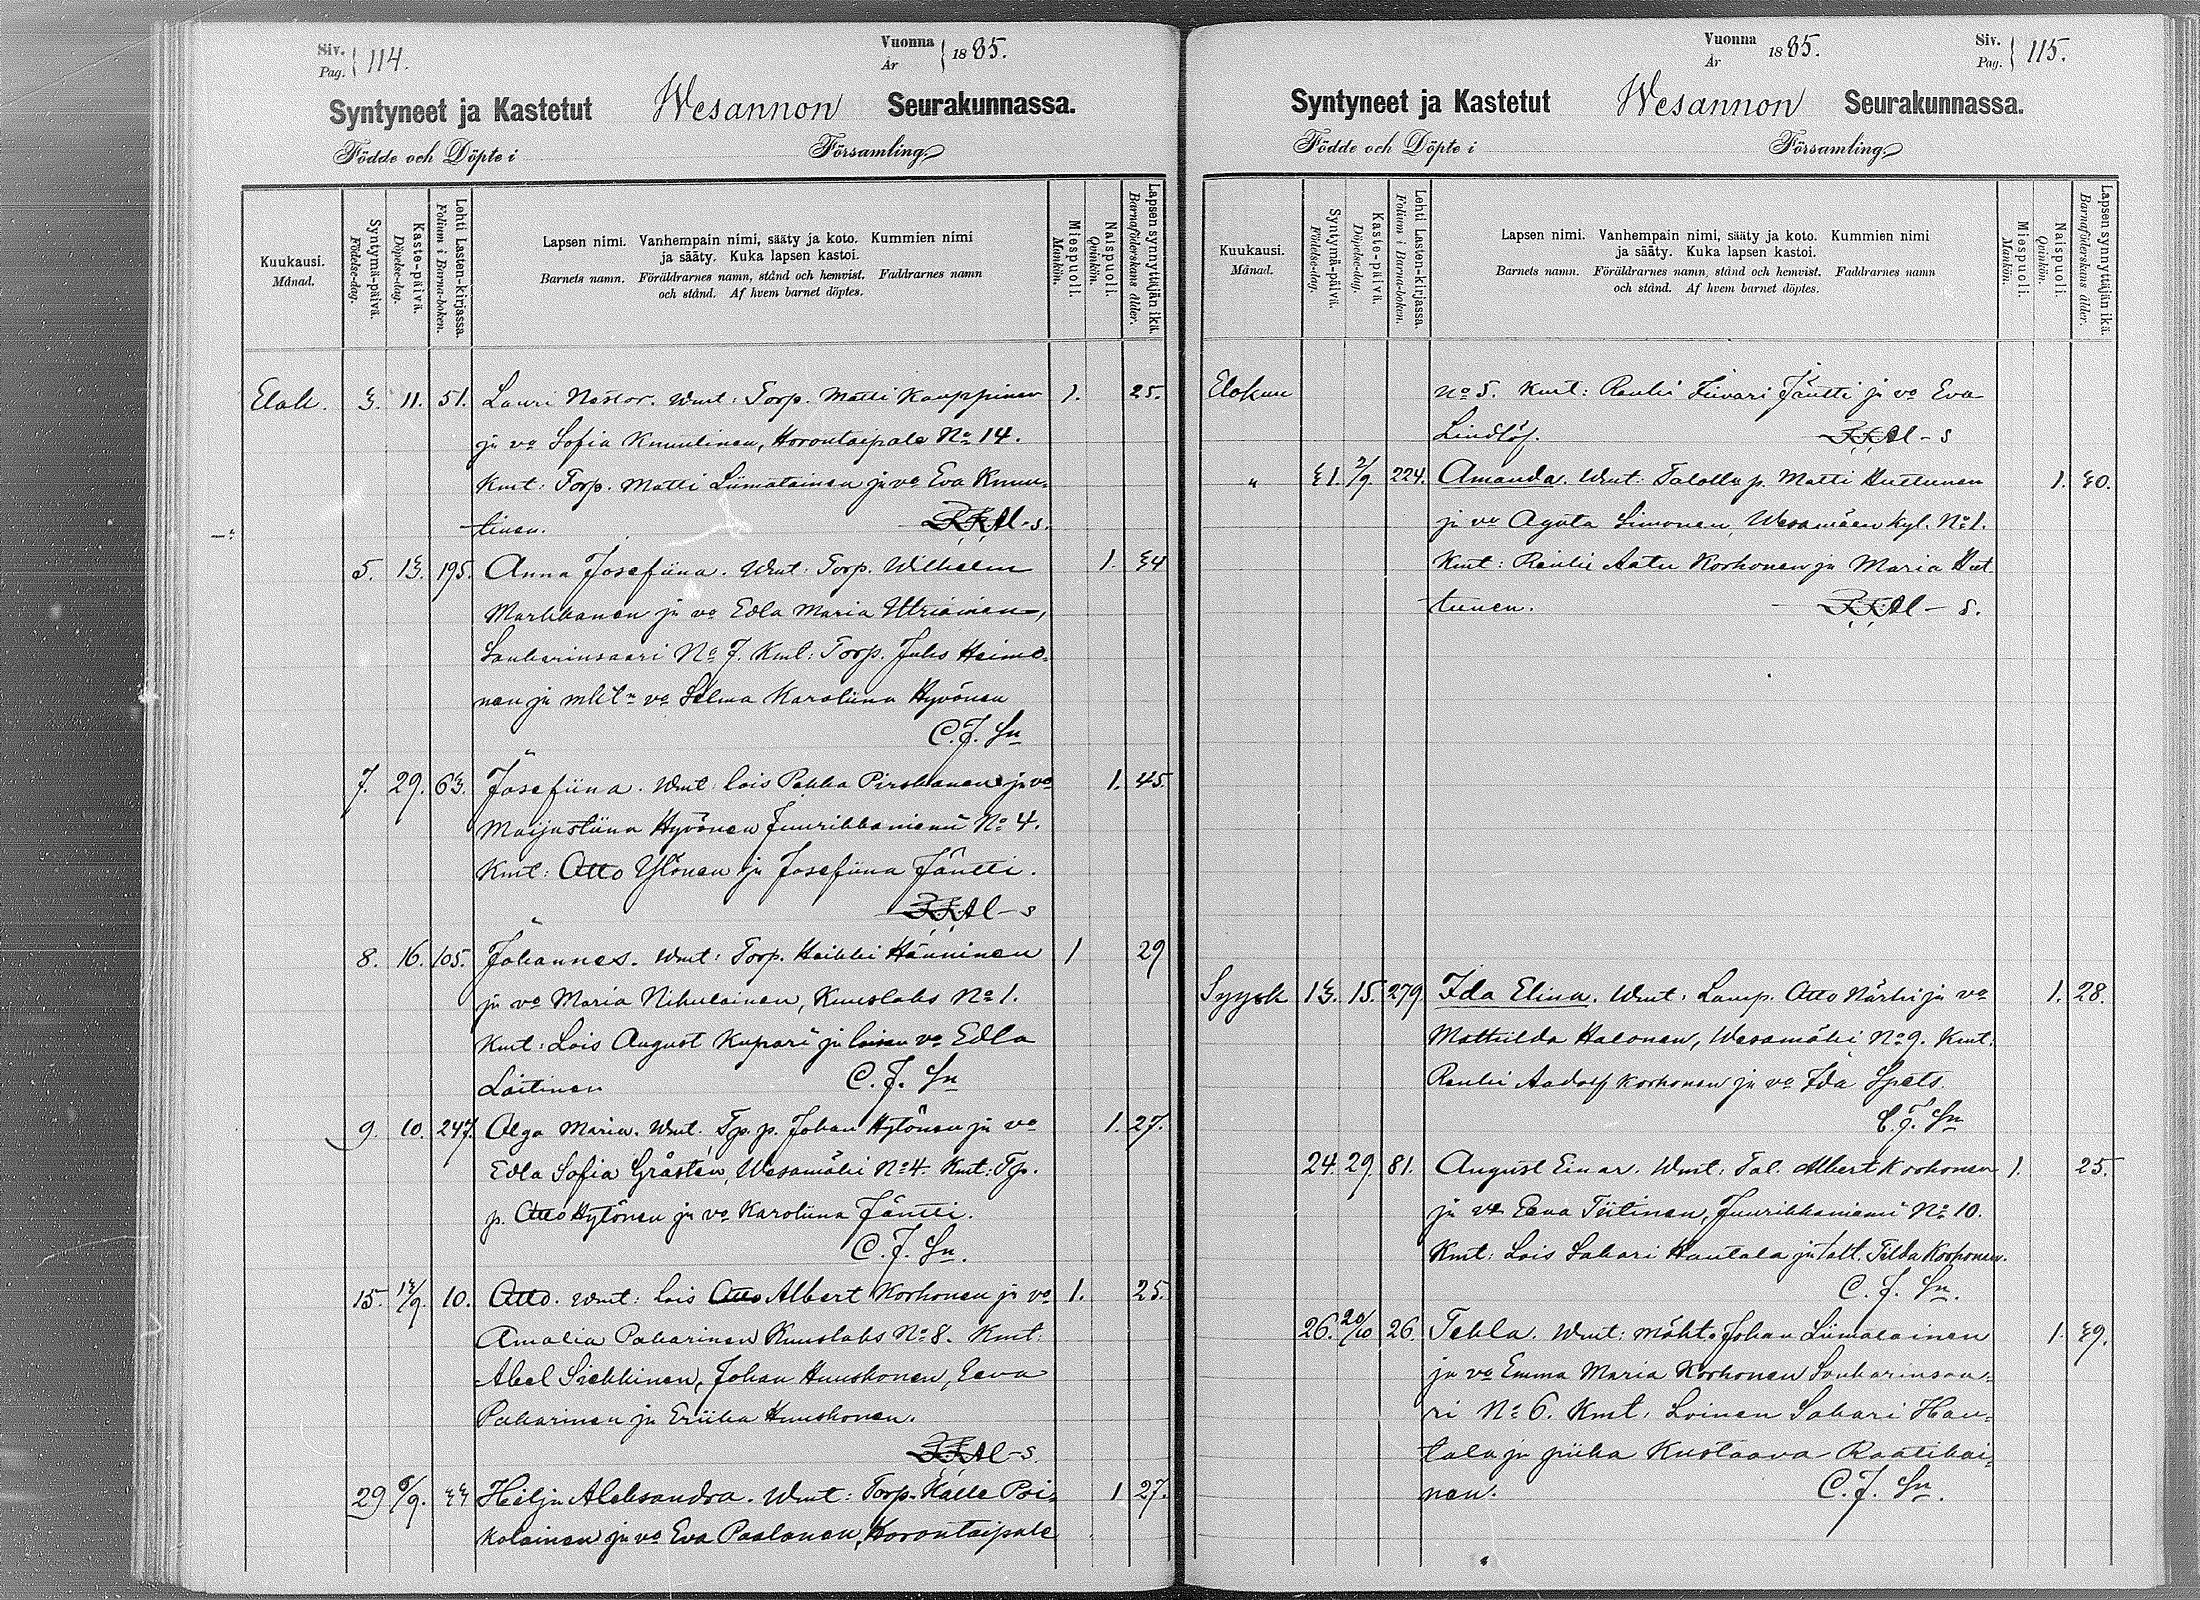 Siv. Pag. 114.
Vuonna År 1885.
Syntyneet ja Kastetut Wesannon Seurakunnassa.
Födde och Döpte i Församling.
Kuukausi. Månad.
Syntymä-päivä. Födelse-dag.
Kaste-päivä. Döpelse-dag.
Lehti Lasten-kirjassa. Folium i Barna-boken.
Lapsen nimi. Vanhempain nimi, sääty ja koto. Kummien nimi
ja sääty. Kuka lapsen kastoi.
Barnets namn. Föräldrarnes namn, stånd och hemvist. Faddrarnes namn
och stånd. Af hvem barnet döptes.
Miespuoli. Mankön.
Naispuoli. Qvinkön.
Lapsen synnyttäjän ikä. Barnaföderskans ålder.
Elok. 3. 11. 51. Lauri Nestor. Wmt: Torp. Matti Kauppinen 1. 25.
ja vo Sofia Knuutinen, Horontaipale No 14.
Kmt: Torp. Matti Liimatainen ja vo Eva Knuu-
tinen. -s.
5. 13. 195. Anna Josefiina. Wmt: Torp. Wilhelm 1. 34
Markkanen ja vo Edla Maria Utriainen,
Sonkarinsaari No 7. Kmt: Torp. Juho Heimo-
nen ja vo Selma Karoliina Hyvönen
C. J. Sn
7. 29. 63. Josefiina. Wmt: lois Pekka Pirskanen ja vo 1. 45.
Maijastiina Hyvönen Juurikkaniemi No 4.
Kmt: Otto Ylönen ja Josefiina Jäntti.
-s
8. 16. 105. Johannes. Wmt: Torp. Heikki Hänninen 1 29
ja vo Maria Nikulainen, Kuuslaks No 1.
Kmt: Lois August Kupari ja loisen vo Edla
Laitinen C. J. Sn
9. 10. 247. Olga Maria. Wmt. Tp. p. Johan Hytönen ja vo 1. 27.
Edla Sofia Gråsten, Wesamäki No 4. Kmt: Tp.
p. Otto Hytönen ja vo Karoliina Jäntti.
C. J. Sn.
15. 13/9. 10. Otto. Wmt: lois Otto Albert Korhonen ja vo 1. 25.
Amalia Pakarinen Kuuslaks No 8. Kmt:
Abel Siekkinen, Johan Huuskonen, Eeva
Pakarinen ja Eriika Huuskonen.
-s.
29 6/9. 33 Hilja Aleksandra. Wmt: Torp. Kalle Poi- 1 27.
kolainen ja vo Eva Paalanen, Horontaipale
Vuonna År 1885.
Siv. Pag. 115.
Syntyneet ja Kastetut Wesannon Seurakunnassa.
Födde och Döpte i Församling.
Kuukausi. Månad.
Syntymä-päivä. Födelse-dag.
Kaste-päivä. Döpelse-dag.
Lehti Lasten-kirjassa. Folium i Barna-boken.
Lapsen nimi. Vanhempain nimi, sääty ja koto. Kummien nimi
ja sääty. Kuka lapsen kastoi.
Barnets namn. Föräldrarnes namn, stånd och hemvist. Faddrarnes namn
och stånd. Af hvem barnet döptes.
Miespuoli. Mankön.
Naispuoli. Qvinkön.
Lapsen synnyttäjän ikä. Barnaföderskans ålder.
Elokuu No 5. Kmt: Renki Iivari Jäntti ja vo Eva
Lindlöf. -s
" 31. 2/9. 224. Amanda. Wmt: Talolla p. Matti Huttunen 1. 30.
ja vo Agata Simonen, Wesamäen kyl. No 1.
Kmt: Renki Aatu Korhonen ja Maria Hut
tunen. - s.
Syysk 13. 15. 279. Ida Elina. Wmt: Lamp. Otto Närhi ja vo 1. 28.
Mathilda Halonen, Wesamäki No 9. Kmt:
Renki Aadolf Korhonen ja vo Ida Spets.
C. J. Sn
24. 29. 81. August Einar. Wmt: Tal. Albert Korhonen 1. 25.
ja vo Eeva Tiitinen, Juurikkaniemi No 10.
Kmt: Lois Sakari Hautala ja tall. Tilda Korhonen.
C. J. Sn.
26. 20/10 26. Tekla. Wmt: Mökt. Johan Liimatainen 1. 39.
ja vo Emma Maria Korhonen Sonkarinsaa-
ri No 6. Kmt: Loinen Sakari Hau-
tala ja piika Kustaava Raatikai-
nen. C. J. Sn.